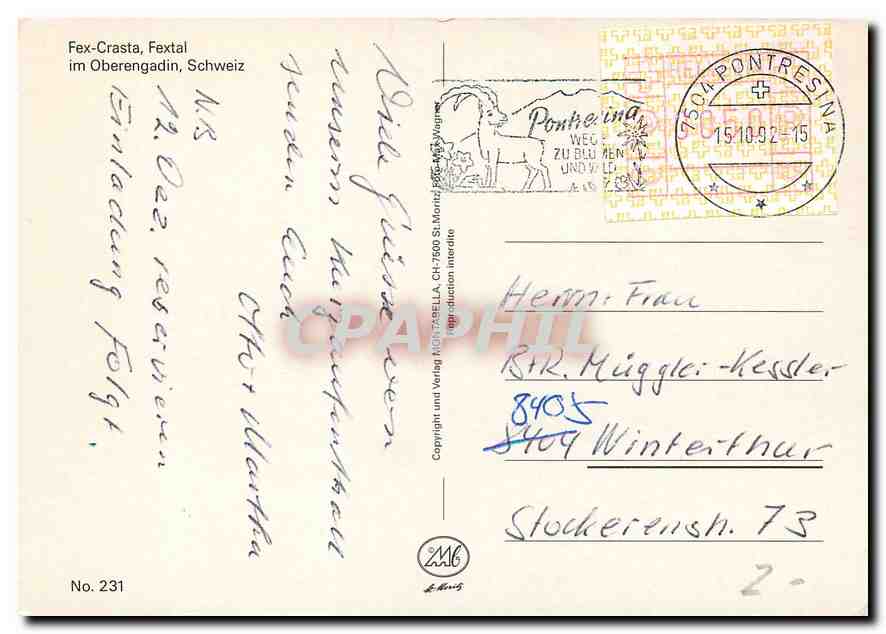 Fex-Crasta, Fextal
im Oberengadin, Schweiz
Viele Grüsse von
unserm Kurzaufenthalt
senden Euch
Otto + Martha
NB
12. Dez. reservieren
Einladung folgt.
Pontresina
WEG
ZU BLUMEN
UND WILD
7504 PONTRESINA
15.10.92-15
0500
Copyright und Verlag MONTABELLA, CH-7500 St.Moritz, Foto Max Wagner
Reproduction interdite
Herrn + Frau
B+R. Müggler-Kessler
8405
8404 Winterthur
Stockerenstr. 73
CPAPHIL
St. Moritz
No. 231
2.-